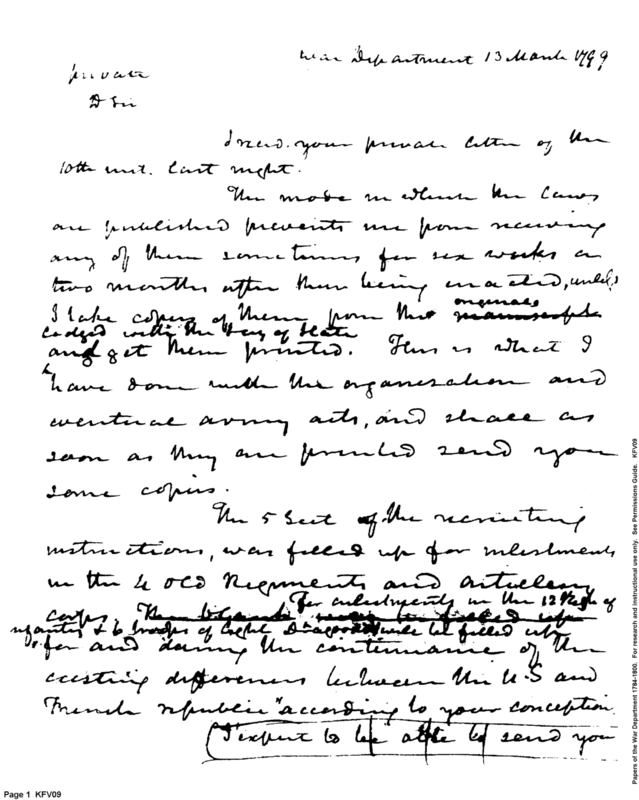 War Department 13 March 1799
private
D Sir
I recd. your private letter of the
10th inst. last night.
The mode in which the Laws
are published prevents me from receiving
any of them sometimes for six weeks or
two months after their being enacted, unless
I take copies of them from the originals manuscripts
lodged with the Secy of State
and get them printed. This is what I
have done with the organization and
eventual army acts, and shall as
soon as they are printed send you
some copies.
The 5 Sect of the recruiting
instructions, was filled up for inlistments
in the 4 old Regiments and artillery
corps. The blank for enlistments in the 12 Regs of
infantry & 6 troops of light Dragoons will be filled up
"for and during the continuance of the
existing differences between the U.S and
French republic" according to your conception.
I expect to be able to send you
Page 1 KFV09
Papers of the War Department 1784-1800. For research and instructional use only. See Permissions Guide. KFV09